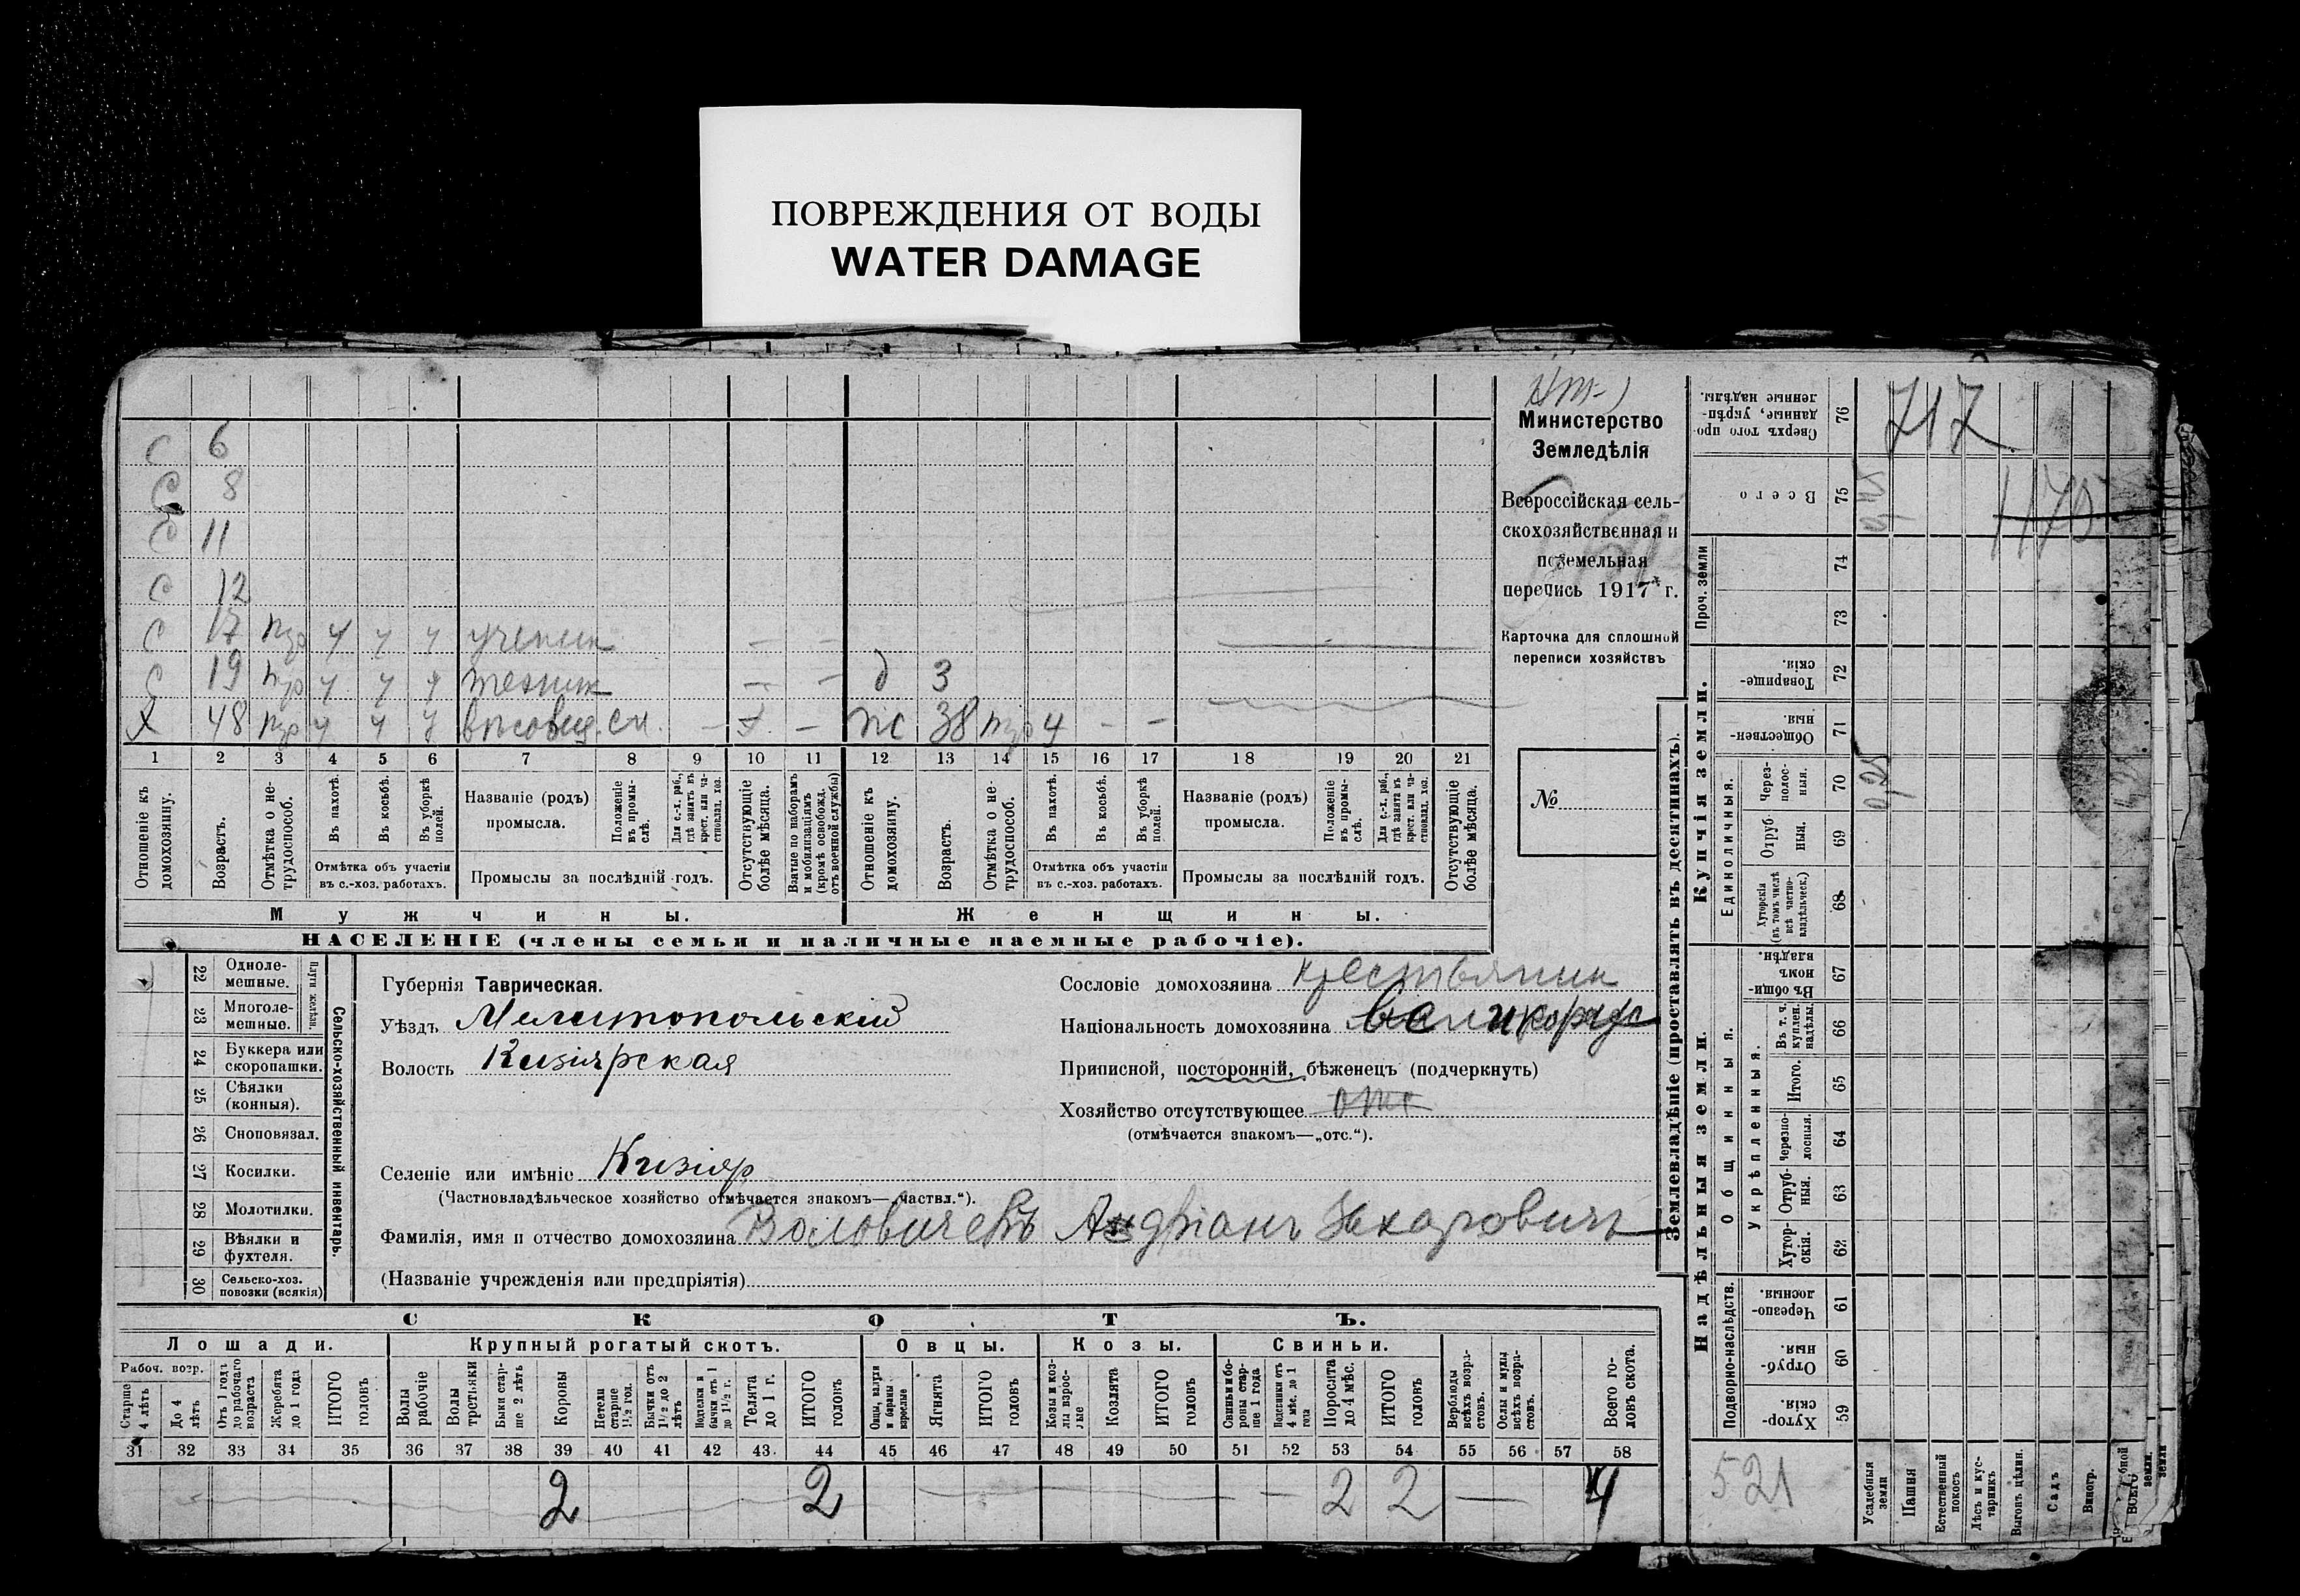 ПОВРЕЖДЕНИЯ ОТ ВОДЫ
WATER DAMAGE
Министерство
Земледѣлія
Всероссійская сель-
скохозяйственная и
поземельная
перепись 1917 г.
Карточка для сплошной
переписи хозяйствъ
№
С 6
С 8
С 11
С 12
С 17 ч ч ч ученик — —
С 19 ч ч ч техник — — д 3
Х 48 ч ч ч — — ж 38 ч — —
1 2 3 4 5 6 7 8 9 10 11 12 13 14 15 16 17 18 19 20 21
Отношеніе къ домохозяину.
Возрастъ.
Отмѣтка о не-трудоспособ.
Въ пахотѣ.
Въ косьбѣ.
Въ уборкѣ полей.
Отмѣтка объ участіи
въ с.-хоз. работахъ.
Названіе (родъ)
промысла.
Положеніе въ промы-слѣ.
Для с.-х. раб., гдѣ занятъ въ крест. или ча-стновлад. хоз.
Промыслы за послѣдній годъ.
Отсутствующіе болѣе мѣсяца.
Взятые по наборамъ и мобилизаціямъ (кромѣ освобожд. отъ военной службы)
Отношеніе къ домохозяину.
Возрастъ.
Отмѣтка о не-трудоспособ.
Въ пахотѣ.
Въ косьбѣ.
Въ уборкѣ полей.
Отмѣтка объ участіи
въ с.-хоз. работахъ.
Названіе (родъ)
промысла.
Положеніе въ промы-слѣ.
Для с.-х. раб., гдѣ занята въ крест. или ча-стновлад. хоз.
Промыслы за послѣдній годъ.
Отсутствующіе болѣе мѣсяца.
Мужчины. Женщины.
НАСЕЛЕНІЕ (члены семьи и наличные наемные рабочіе).
Сельско-хозяйственный инвентарь.
Плуги желѣзн.
22 Одноле-мешные.
23 Многоле-мешные.
24 Буккера или скоропашки.
25 Сѣялки (конныя).
26 Сноповязал.
27 Косилки.
28 Молотилки.
29 Вѣялки и фухтеля.
30 Сельско-хоз. повозки (всякія)
Губернія Таврическая.
Уѣздъ Мелитопольскій
Волость Кизіярская
Селеніе или имѣніе Кизіяр
(Частновладѣльческое хозяйство отмѣчается знакомъ—„частвл.“).
Фамилія, имя и отчество домохозяина Андріанъ Захаровичъ
(Названіе учрежденія или предпріятія)
Сословіе домохозяина крестьянин
Національность домохозяина великорус
Приписной, посторонній, бѣженецъ (подчеркнуть)
Хозяйство отсутствующее отс
(отмѣчается знакомъ—„отс.“).
СКОТЪ.
Лошади. Крупный рогатый скотъ. Овцы. Козы. Свиньи.
Рабоч. возр.
Старше 4 лѣтъ
До 4 лѣтъ
Отъ 1 года до рабочаго возраста
Жеребята до 1 года
ИТОГО головъ
Волы рабочіе
Волы третьяки
Быки стар-ше 2 лѣтъ
Коровы
Нетели старше 1½ год.
Бычки отъ 1½ до 2 лѣтъ
Подтелки и бычки отъ 1 до 1½ г.
Телята до 1 г.
ИТОГО головъ
Овцы, валухи и бараны взрослые
Ягнята
ИТОГО головъ
Козы и коз-лы взрос-лые
Козлята
ИТОГО головъ
Свиньи и бо-ровы стар-ше 1 года
Подсвинки отъ 4 мѣс. до 1 года
Поросята до 4 мѣс.
ИТОГО головъ
Верблюды всѣхъ возра-стовъ.
Ослы и мулы всѣхъ возра-стовъ.
Всего го-ловъ скота.
31 32 33 34 35 36 37 38 39 40 41 42 43 44 45 46 47 48 49 50 51 52 53 54 55 56 57 58
2 2 — 2 2 — 4
Землевладѣніе (проставлять въ десятинахъ).
Купчія земли.
Надѣльныя земли.
Сверхъ того про-данные, укрѣп-ленные надѣлы. 76
Всего 75
Проч. земли 74 73
Товарище-скія. 72
Обществен-ныя. 71
Единоличныя.
Через-полос-ныя. 70
Отруб-ныя. 69
Хуторскія (въ томъ числѣ всѣ частно-владѣльческ.) 68
Въ общин-номъ владѣн. 67
Общинныя.
Укрѣпленныя.
Въ т. ч. куплен. надѣлы. 66
Итого. 65
Черезпо-лосныя. 64
Отруб-ныя. 63
Хутор-скія. 62
Подворно-наслѣдств.
Черезпо-лосныя. 61
Отруб-ныя. 60
Хутор-скія. 59
717
521
Усадебныя земли
Пашня
Естественный покосъ
Лѣсъ и кус-тарникъ
Выгонъ цѣлин.
Садъ
Виногр.
ВСЕГО